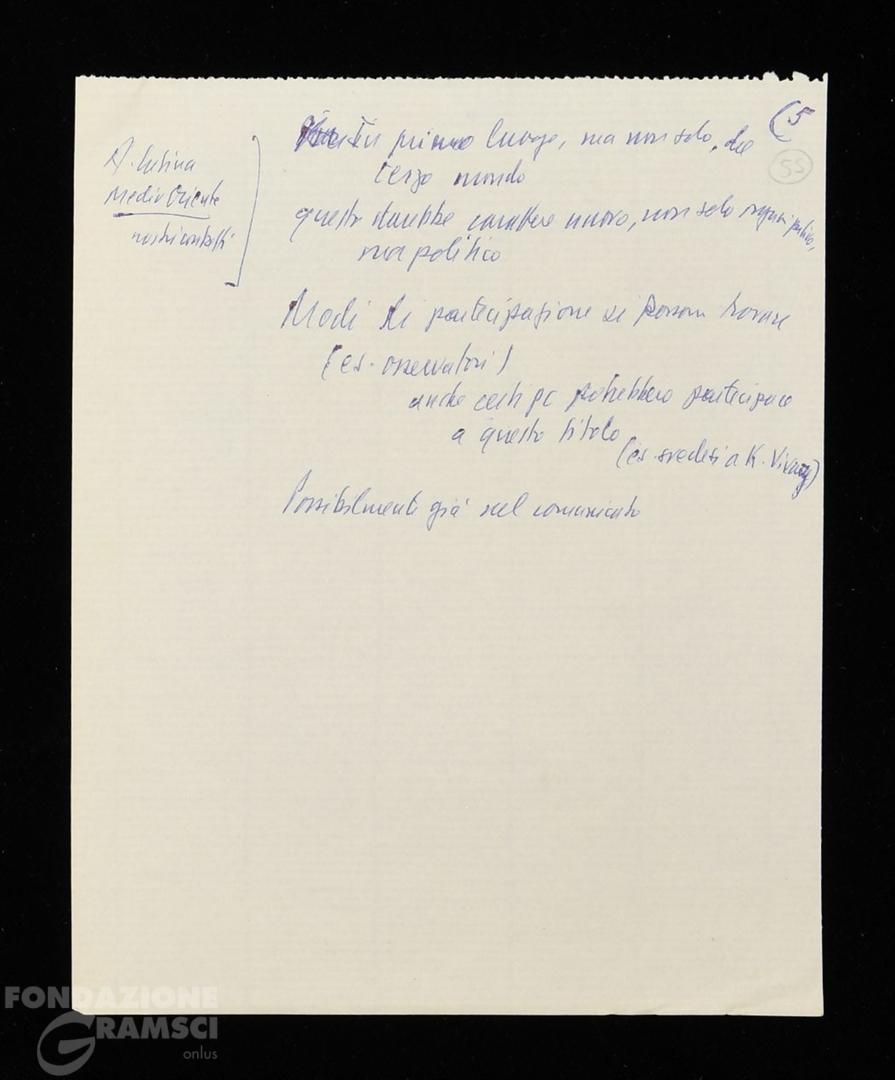 (5
55
A. Latina
Medio Oriente
nostri contatti
In primo luogo, ma non solo, del
terzo mondo
questo darebbe carattere nuovo, non solo
ma politico
Modi di partecipazione si possono trovare
(es. osservatori)
anche certi pc potrebbero partecipare
a questo titolo
(es. svedesi a K. Vary)
Possibilmente già nel comunicato
FONDAZIONE
GRAMSCI
onlus